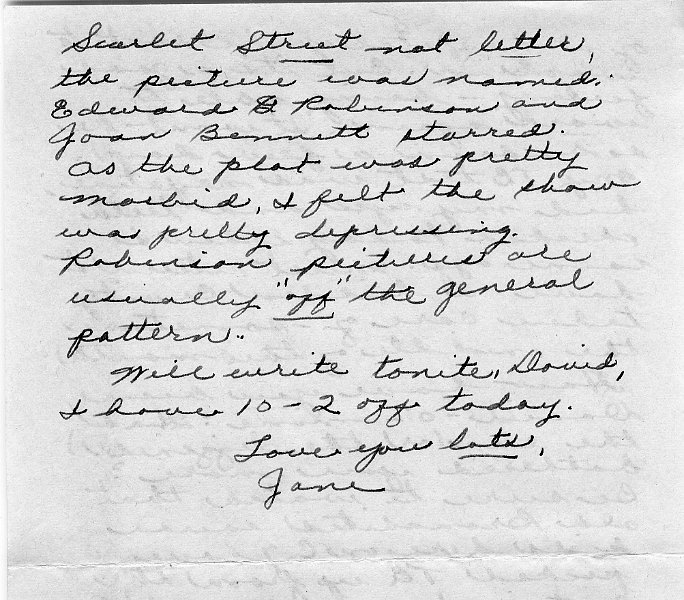 Scarlet Street not letter,
the picture was named.
Edward G Robinson and
Joan Bennett starred.
As the plot was pretty
morbid, I felt the show
was pretty depressing.
Robinson pictures are
usually "off" the general
pattern..
Will write tonite, David,
I have 10-2 off today.
Love you lots,
Jane